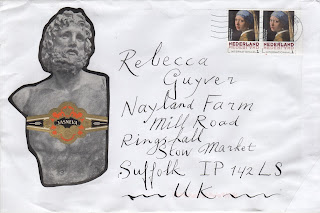 NEDERLAND
NEDERLAND
JASMELA
Rebecca
Guyver
Nayland Farm
Mill Road
Ringshall
Stow Market
Suffolk IP 142LS
UK